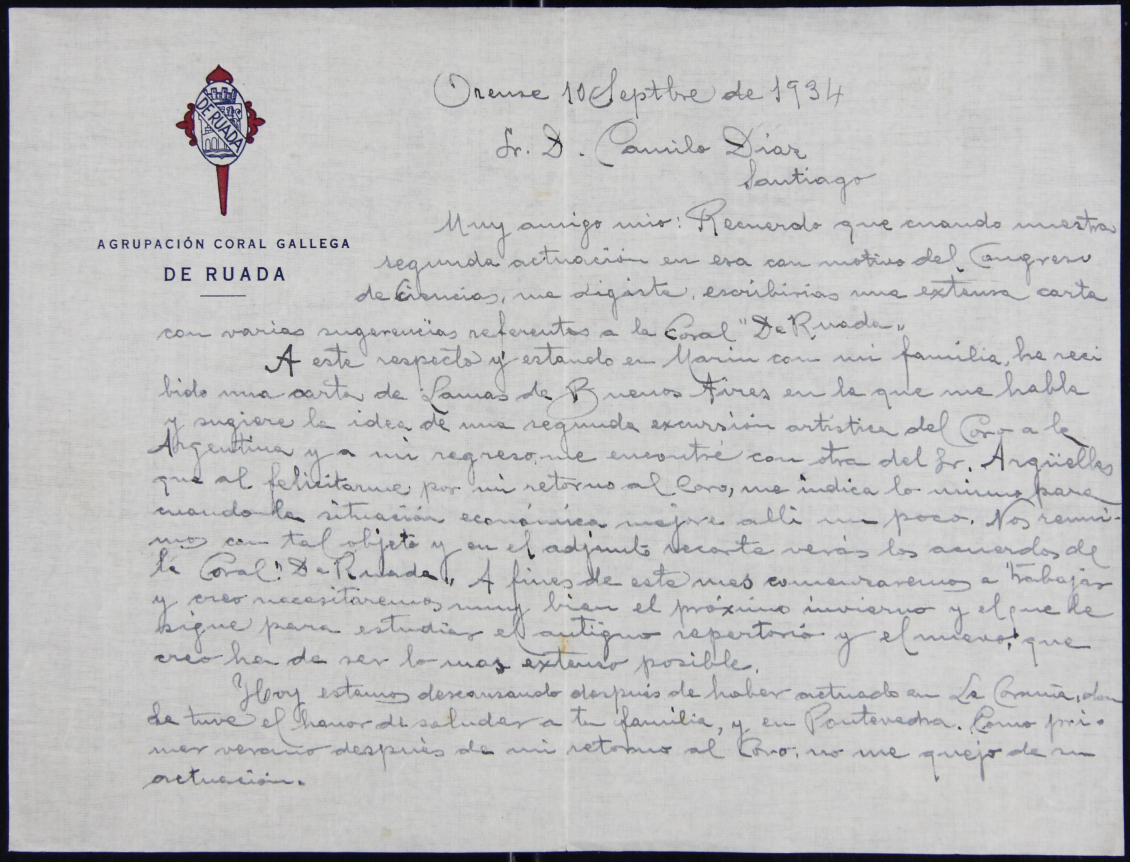 DE RUADA
AGRUPACIÓN CORAL GALLEGA
DE RUADA
Orense 10 Septbre de 1934
Sr. D. Camilo Díaz
Santiago
Muy amigo mio: Recuerdo que cuando nuestra
segunda actuación en esa con motivo del Congreso
de Ciencias, me digiste, escribirias una extensa carta
con varias sugerencias referentes a la Coral "De Ruada"
A este respecto y estando en Marin con mi familia, he reci
bido una carta de Lamas de Buenos Aires en la que me habla
y sugiere la idea de una segunda excursión artística del Coro a la
Argentina y a mi regreso, me encontré con otra del Sr. Argüelles
que al felicitarme por mi retorno al Coro, me indica lo mismo para
cuando la situación económica mejore alli un poco. Nos reuni-
mos con tal objeto y en el adjunto recorte verás los acuerdos de
la Coral "De Ruada" A fines de este mes comenzaremos a trabajar
y creo necesitaremos muy bien el próximo invierno y el que le
sigue para estudiar el antiguo repertorio y el nuevo, que
creo ha de ser lo mas extenso posible.
Hoy estamos descansando después de haber actuado en La Coruña, don
de tuve el honor de saludar a tu familia, y en Pontevedra. Como pri-
mer verano después de mi retorno al Coro, no me quejo de su
actuación.